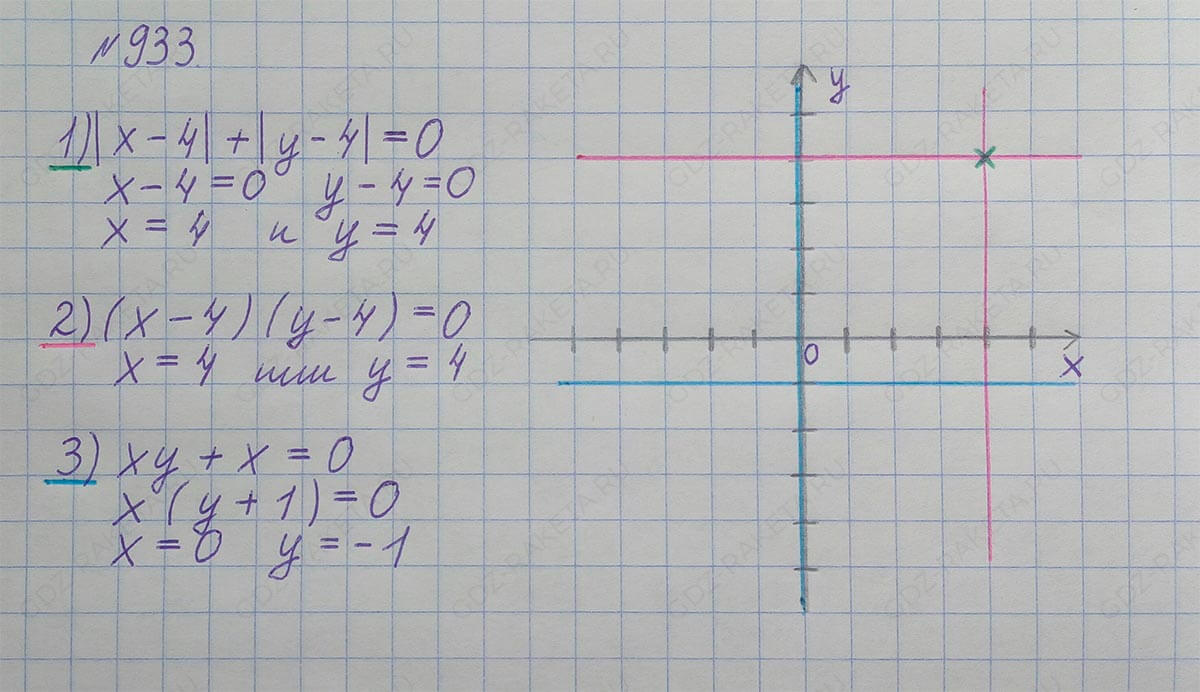 №933.
1) |x-4|+|y-4|=0
x-4=0 y-4=0
x=4 и y=4
2) (x-4)(y-4)=0
x=4 или y=4
3) xy+x=0
x(y+1)=0
x=0 y=-1
y
0
x
GDZ-RAKETA.RU